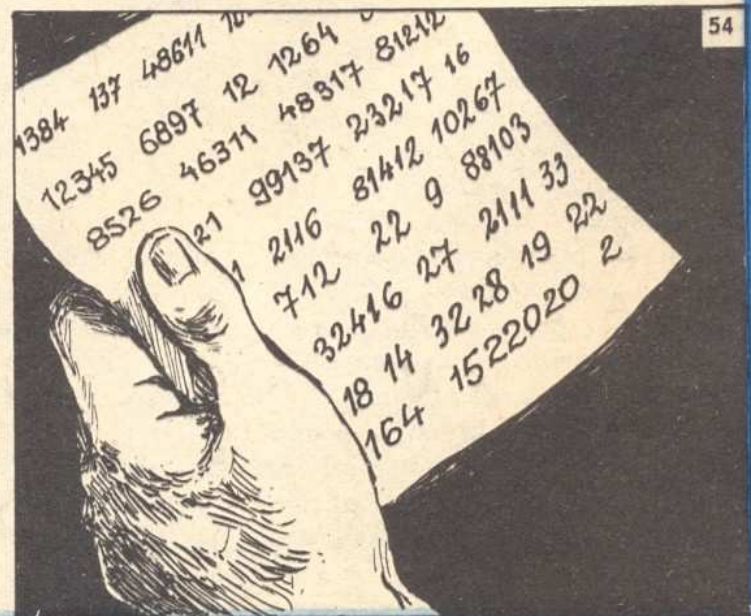 54
1384 137 48611
12345 6897 12 1264
8526 46311 48317 81212
21 99137 23217 16
1 2116 81412 10267
712 22 9 88103
32416 27 2111 33
18 14 32 28 19 22
164 1522020 2